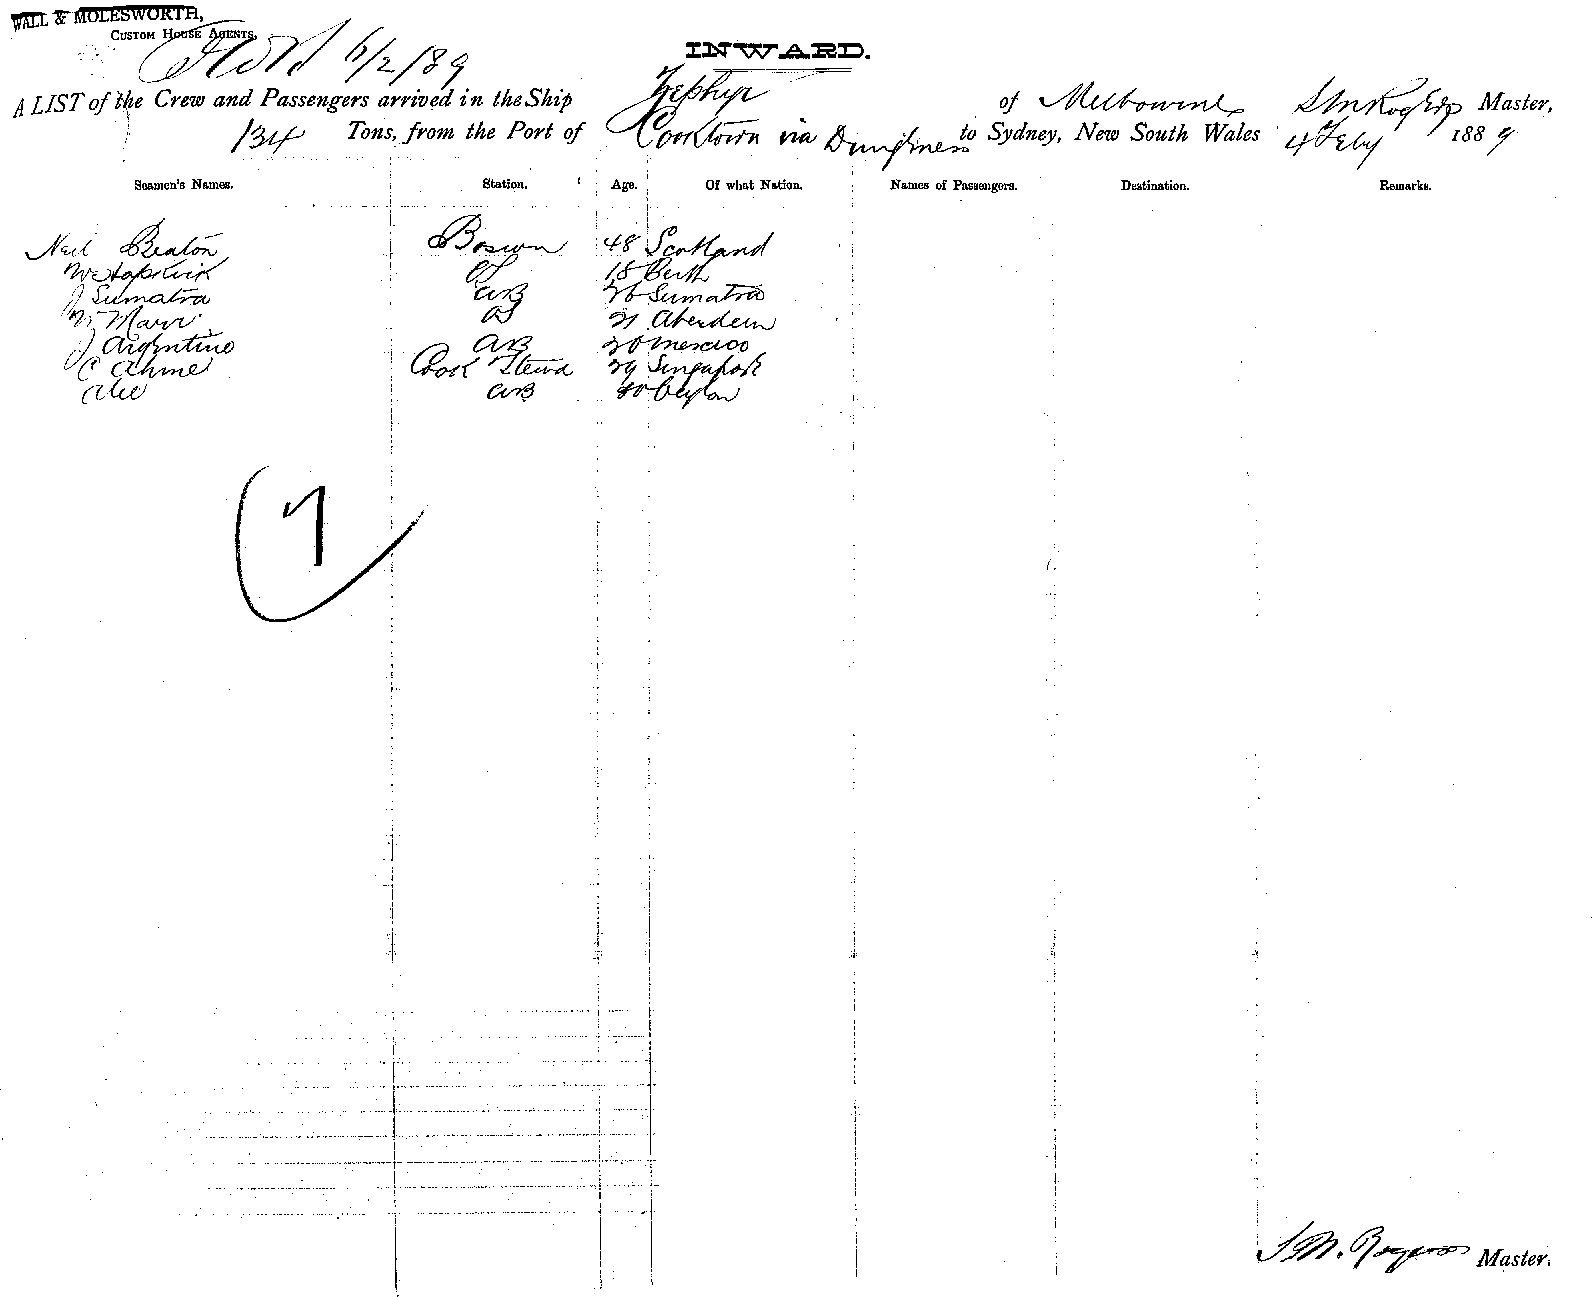 WALL & MOLESWORTH,
CUSTOM HOUSE AGENTS,
6/2/89
INWARD.
A LIST of the Crew and Passengers arrived in the Ship Zephyr of Melbourne Master,
134 Tons, from the Port of Cooktown via Dungeness to Sydney, New South Wales 4 Feby 1889
Seamen's Names. Station. Age. Of what Nation. Names of Passengers. Destination. Remarks.
Neil Beaton Bosun 48 Scotland
W 18
J Sumatra AB 26 Sumatra
W Marr OS 21 Aberdeen
J Argentino AB 20 Mexico
C Ahme Cook Stewd 29 Singapore
Alie AB 40 Ceylon
7
S M. Rogers Master.